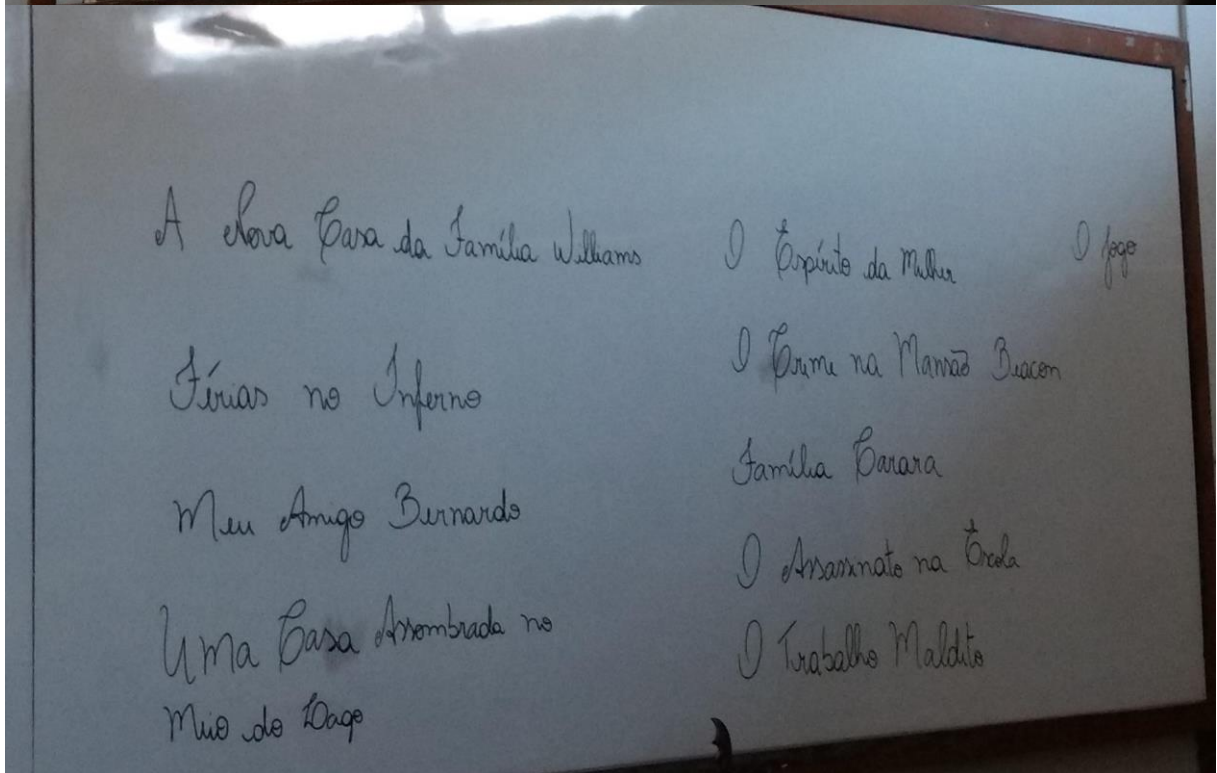 A Nova Casa da Família Williams
Férias no Inferno
Meu Amigo Bernardo
Uma Casa Assombrada no
Meio do Lago
O Espírito da Mulher
O Crime na Mansão Beacon
Família Carara
O Assassinato na Escola
O Trabalho Maldito
O Jogo